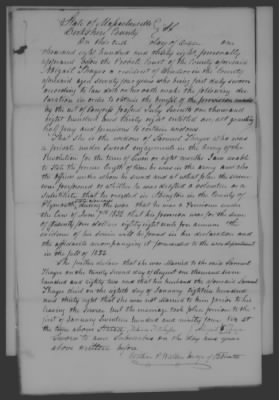 State of Massachusetts
Berkshire County } SS
On this 2nd day of
thousand eight hundred and thirty eight personally
appeared before the Probate Court of the County aforesaid
Abigail Thayer a resident of Windsor in the County
aforesaid aged seventy four years who being first duly sworn
according to law doth on her oath make the following dec
laration in order to obtain the benefit of the provision made
by the act of Congress passed July Seventh one thousand
eight hundred and thirty eight entitled an act granting
half pay and pensions to certain widows
That she is the widow of Samuel Thayer who was
a private under several engagements in the Army of the
Revolution for the term of
state the precise length of time he was in the army and also
the officers under whom he served and of what place the service
was performed or whether he was drafted a volunteer or a
Substitute that he resided in in the County of
Plymouth during the
the Law of June 7th 1832 that his pension was for the sum
of twenty four dollars eighty eight cents per annum the
evidence of his service will be found in his declaration and
the affidavits accompanying it forwarded to the war department
in the fall of 1832
She further declares that she was married to the said Samuel
Thayer on the twenty second day of August one thousand seven
hundred and eighty two and that her husband the aforesaid Samuel
Thayer died on the eighth day of January eighteen hundred
and thirty eight that she was not married to him prior to his
leaving the service but the marriage took place previous to the
first of January Seventeen hundred and ninety four viz at
the time above stated
Sworn to and Subscribed on the day and year
above written before
William P Walker Judge of Probate